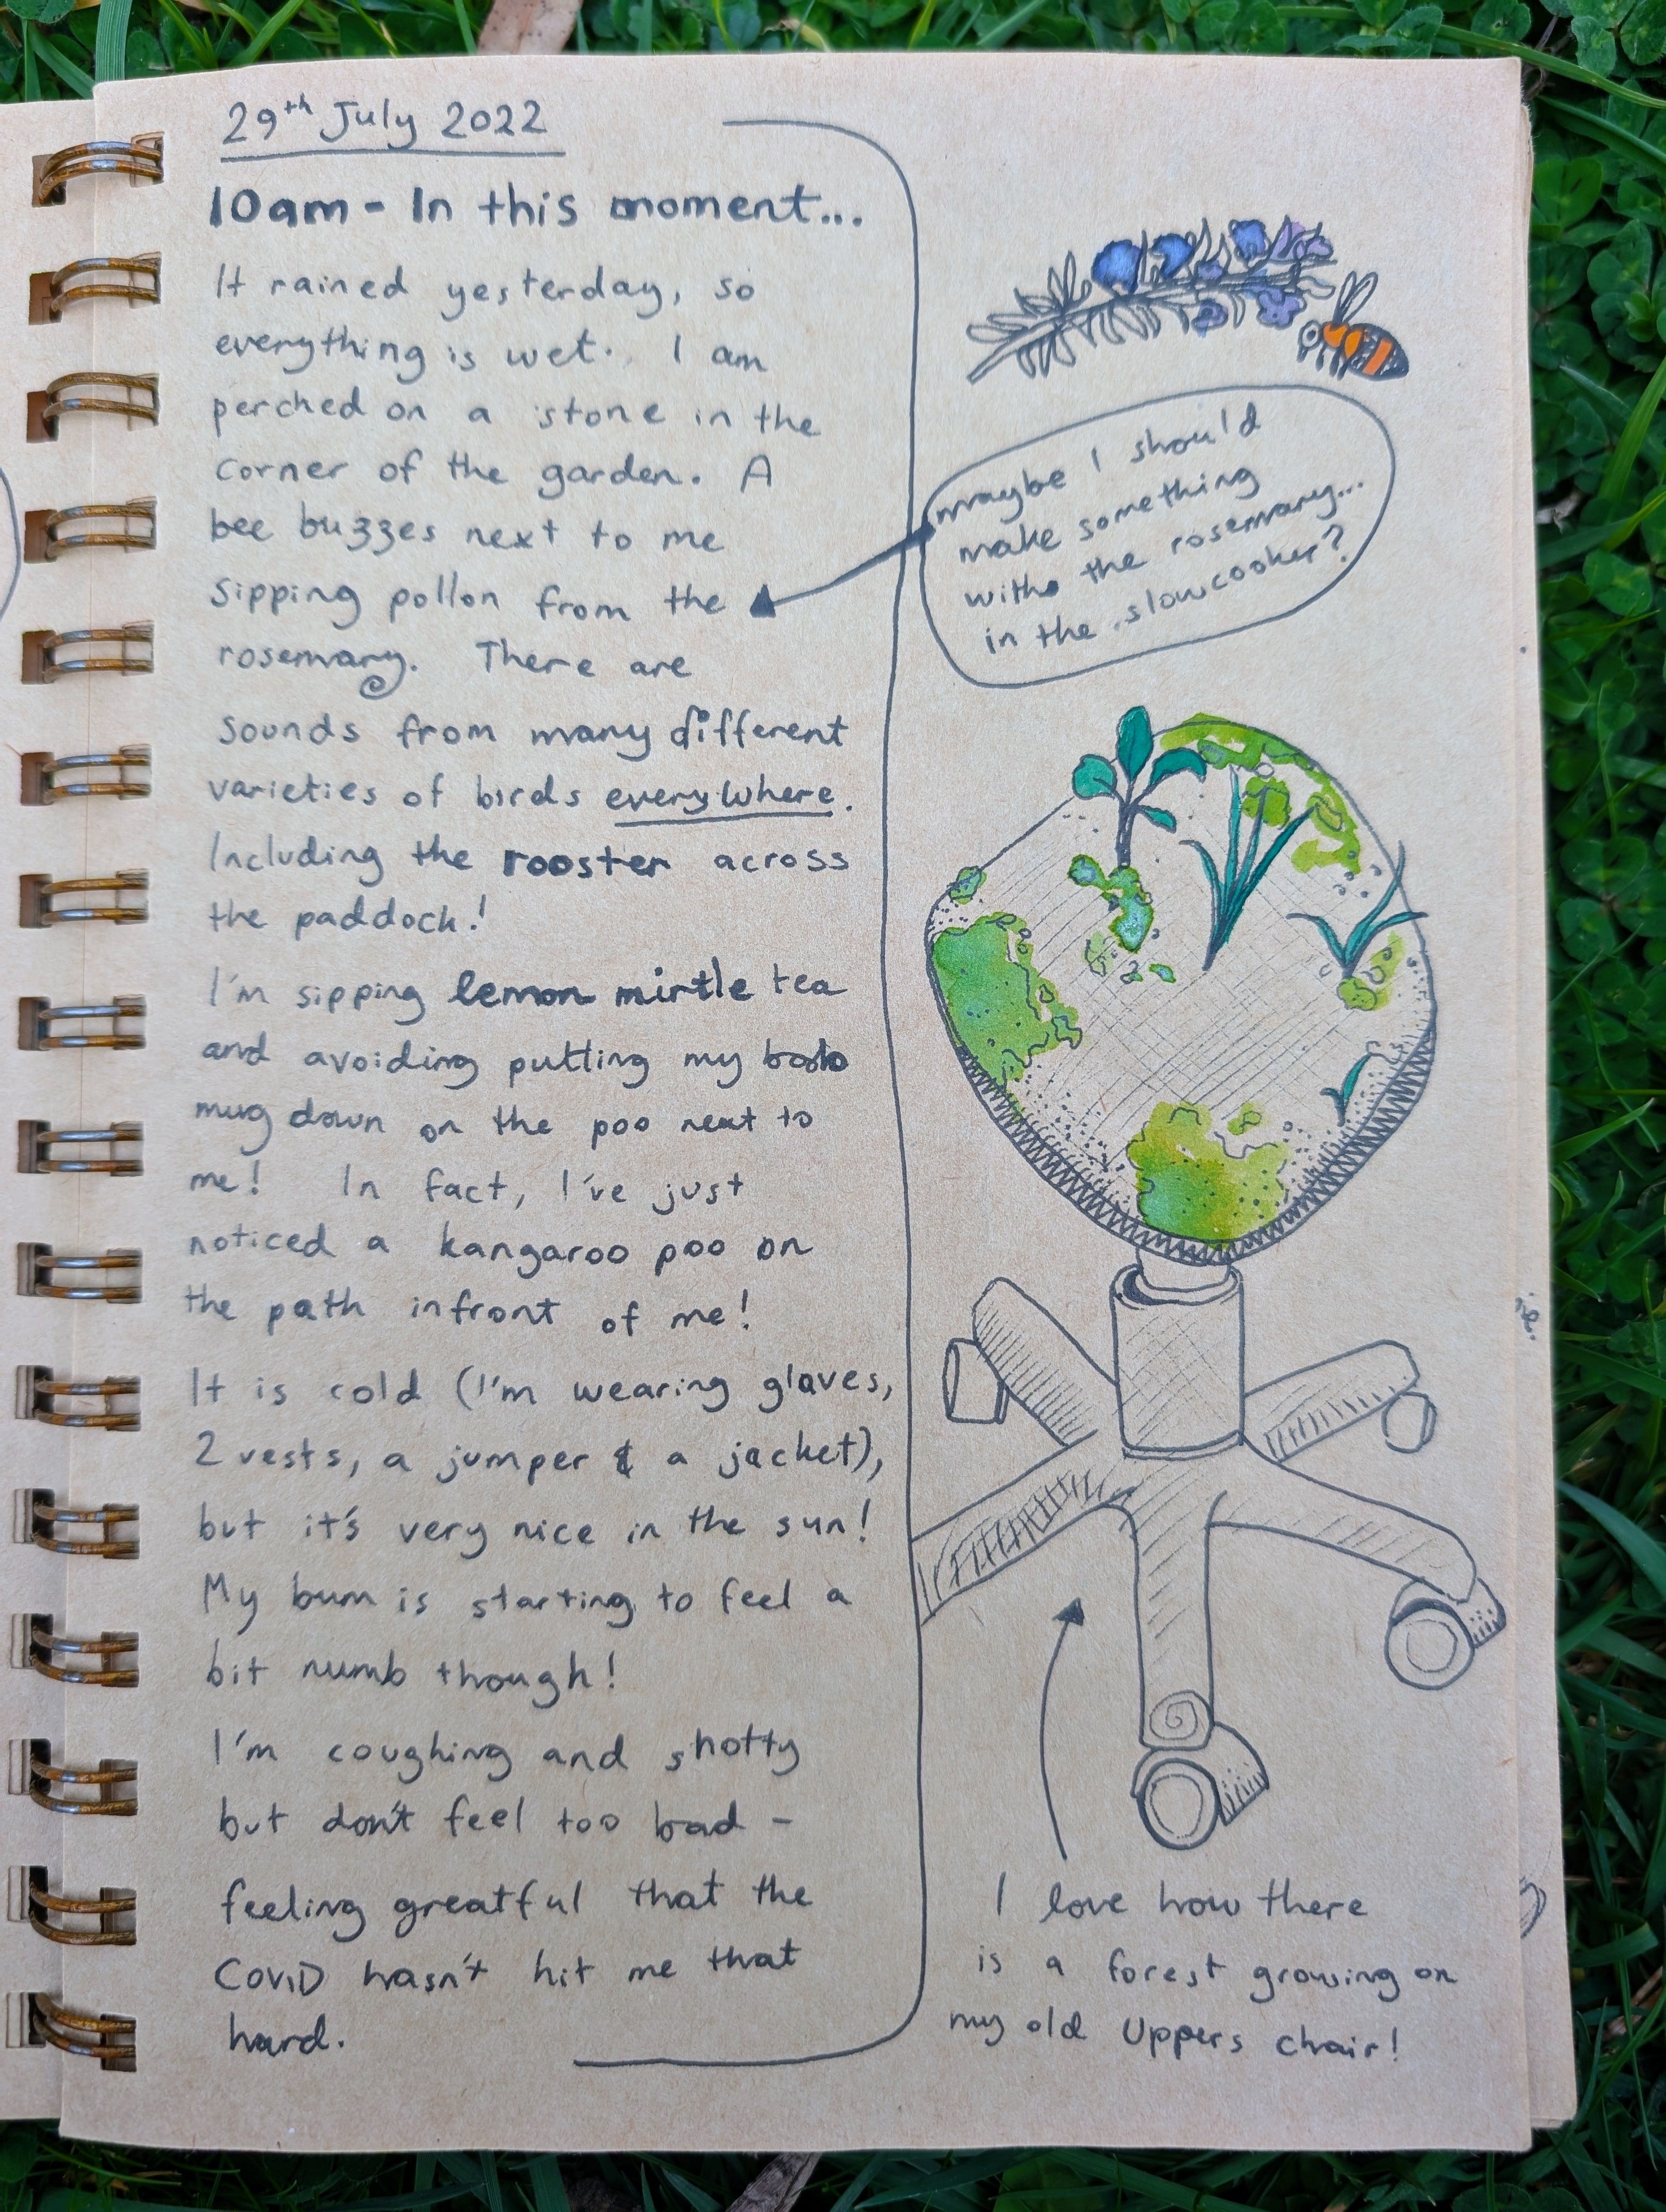 29th July 2022
10am - In this moment...
It rained yesterday, so
everything is wet. I am
perched on a stone in the
corner of the garden. A
bee buzzes next to me
sipping pollon from the
rosemary. There are
sounds from many different
varieties of birds everywhere.
Including the rooster across
the paddock!
I'm sipping lemon mirtle tea
and avoiding putting my
mug down on the poo next to
me! In fact, I've just
noticed a kangaroo poo on
the path infront of me!
It is cold (I'm wearing gloves,
2 vests, a jumper & a jacket),
but it's very nice in the sun!
My bum is starting to feel a
bit numb though!
I'm coughing and snotty
but don't feel too bad -
feeling greatful that the
COVID hasn't hit me that
hard.
maybe I should
make something
with the rosemary...
in the slowcooker?
I love how there
is a forest growing on
my old Uppers chair!